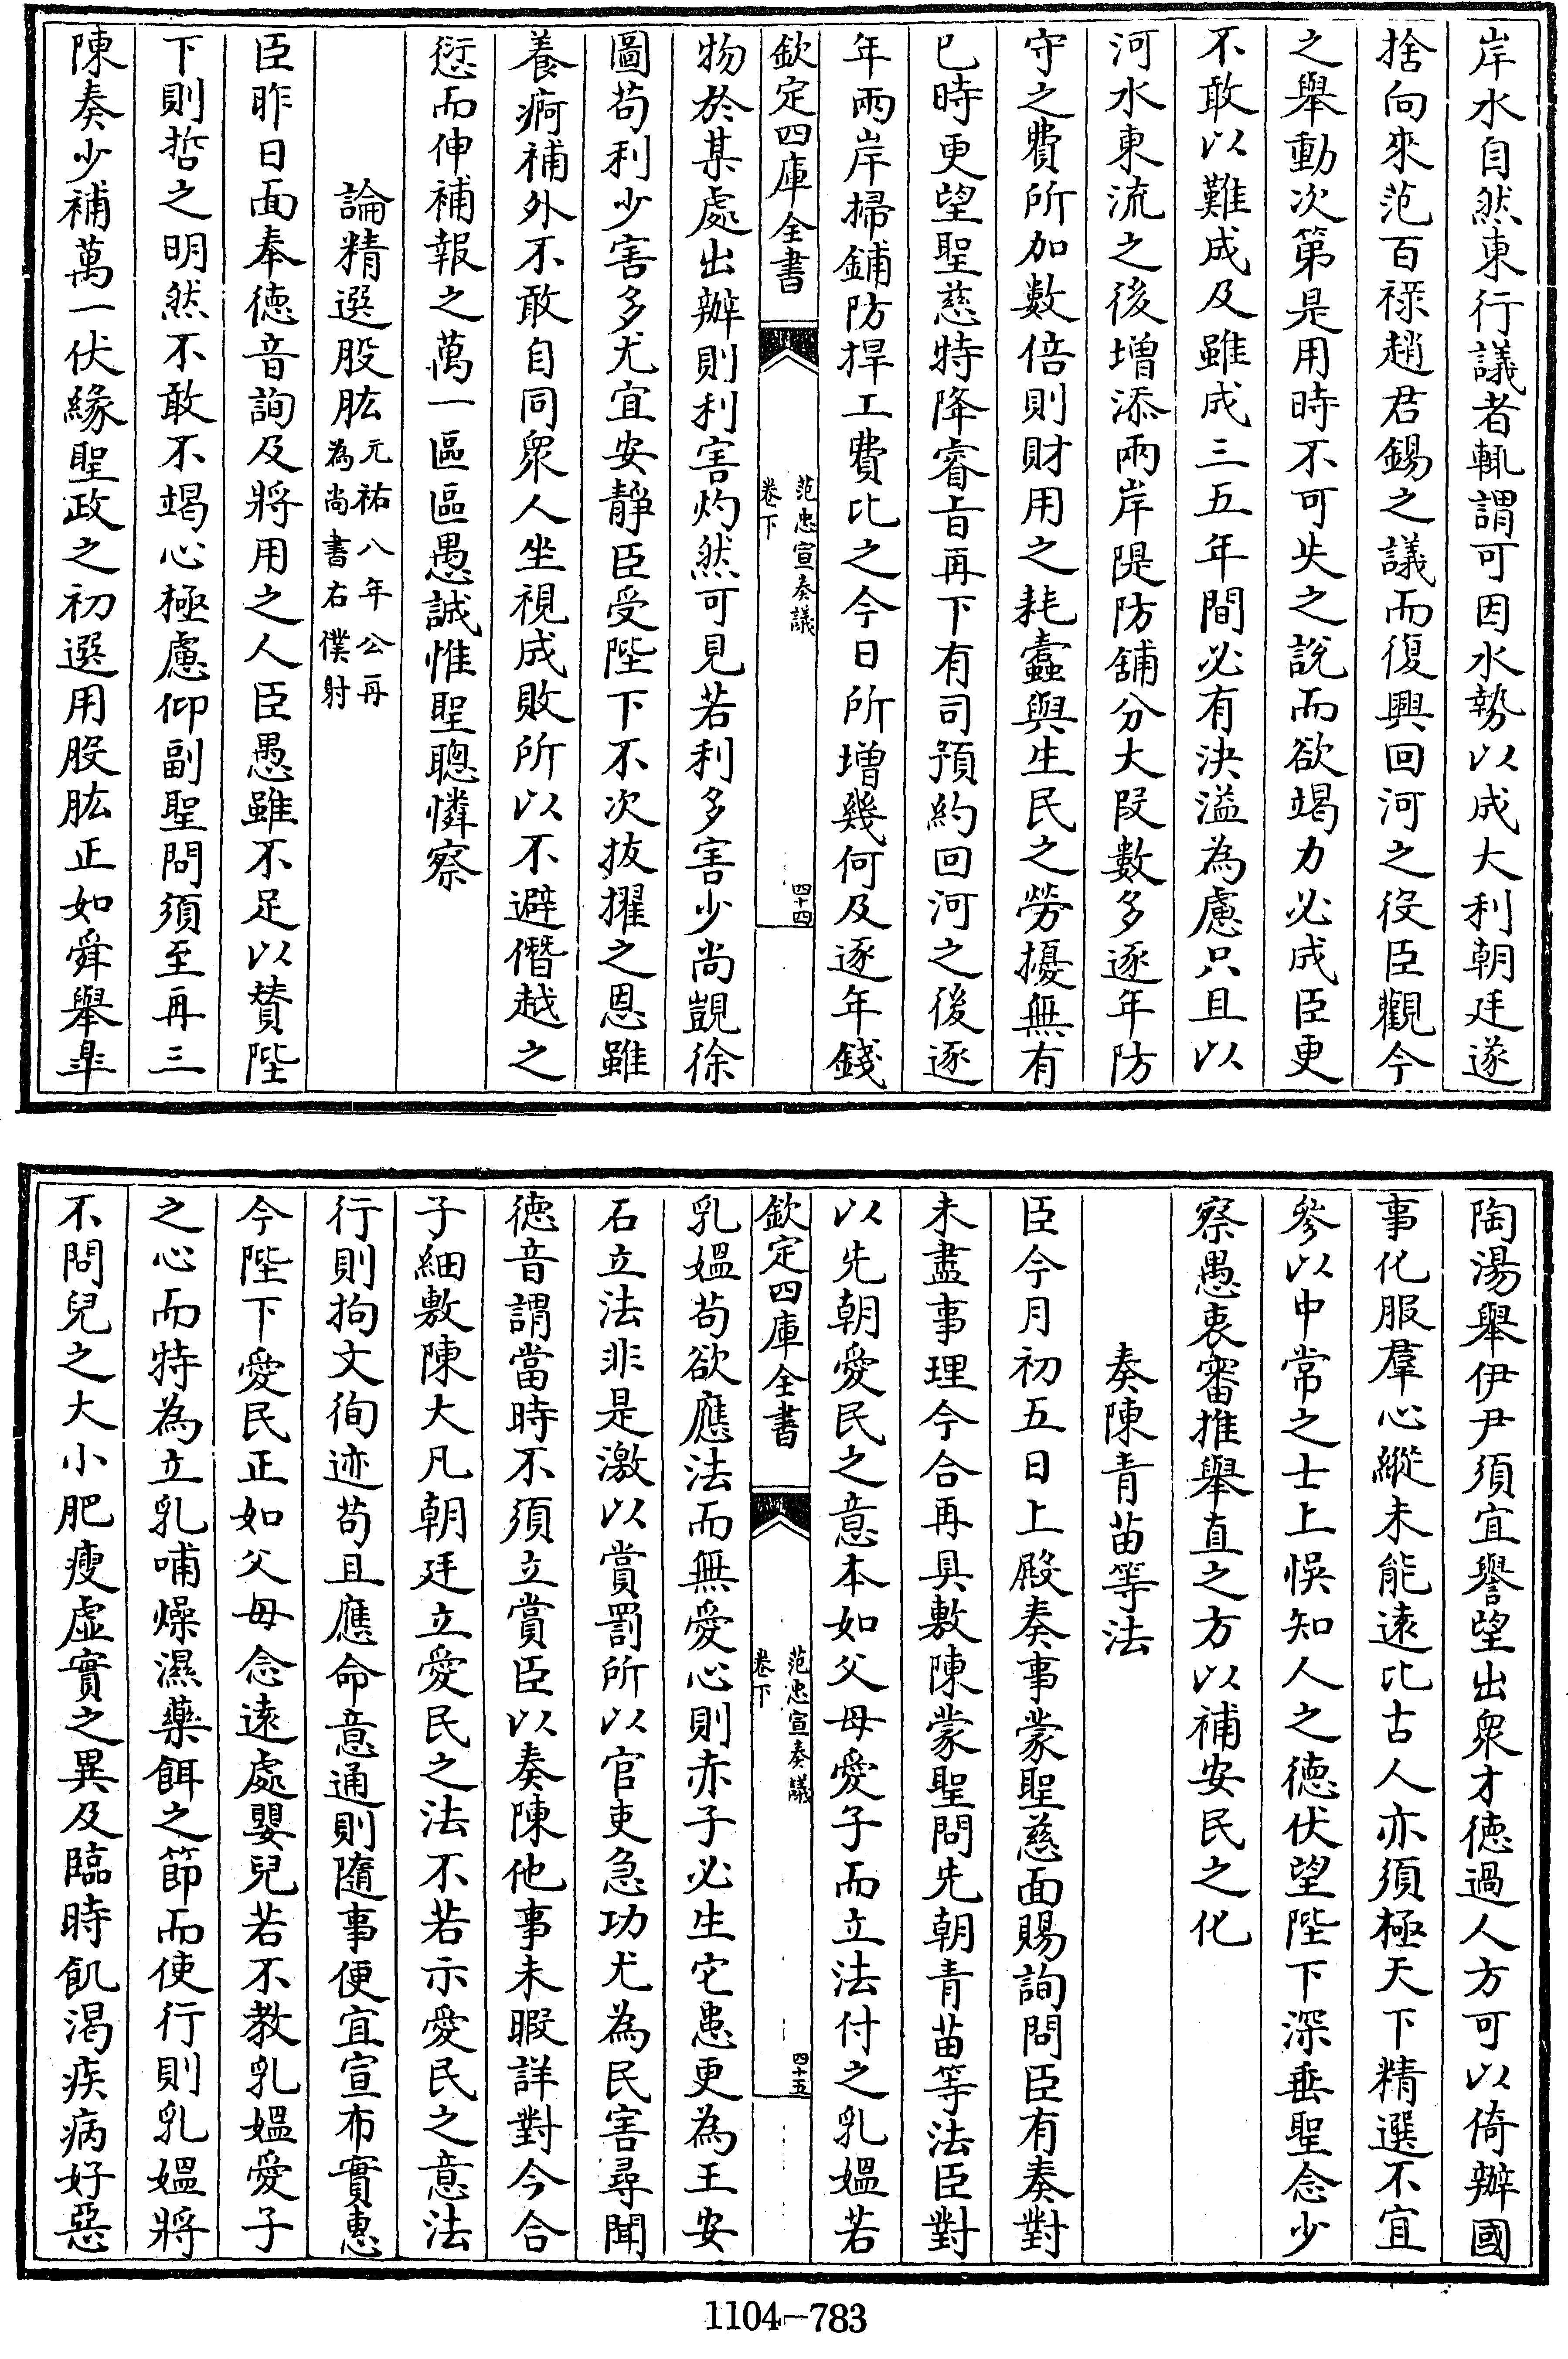 岸水自然東行議者輒謂可因水勢以成大利朝廷遂
捨向來范百祿趙君錫之議而復興回河之役臣觀今
之舉動次第是用時不可失之說而欲竭力必成臣更
不敢以難成及雖成三五年間必有決溢為慮只且以
河水東流之後增添兩岸隄防舖分大段數多逐年防
守之費所加數倍則財用之耗蠹與生民之勞擾無有
已時更望聖慈特降睿旨再下有司預約回河之後逐
年兩岸掃鋪防捍工費比之今日所增幾何及逐年錢
欽定四庫全書
范忠宣奏議
卷下
四十四
物於某處出辦則利害灼然可見若利多害少尚覬徐
圖苟利少害多尤宜安靜臣受陛下不次拔擢之恩雖
養痾補外不敢自同衆人坐視成敗所以不避僭越之
愆而伸補報之萬一區區愚誠惟聖聰憐察
論精選股肱元祐八年公再
為尚書右僕射
臣昨日面奉德音詢及將用之人臣愚雖不足以贊陛
下則哲之明然不敢不竭心極慮仰副聖問須至再三
陳奏少補萬一伏緣聖政之初選用股肱正如舜舉臯
陶湯舉伊尹須宜譽望出衆才德過人方可以倚辦國
事化服羣心縱未能遠比古人亦須極天下精選不宜
參以中常之士上悞知人之德伏望陛下深垂聖念少
察愚衷審推舉直之方以補安民之化
奏陳青苗等法
臣今月初五日上殿奏事蒙聖慈面賜詢問臣有奏對
未盡事理今合再具敷陳蒙聖問先朝青苗等法臣對
以先朝愛民之意本如父母愛子而立法付之乳媼若
欽定四庫全書
范忠宣奏議
卷下
四十五
乳媼苟欲應法而無愛心則赤子必生它患更為王安
石立法非是激以賞罰所以官吏急功尤為民害尋聞
德音謂當時不須立賞臣以奏陳他事未暇詳對今合
子細敷陳大凡朝廷立愛民之法不若示愛民之意法
行則拘文徇迹苟且應命意通則隨事便宜宣布實惠
今陛下愛民正如父母念遠處嬰兒若不教乳媼愛子
之心而特為立乳哺燥濕藥餌之節而使行則乳媼將
不問兒之大小肥瘦虛實之異及臨時飢渴疾病好惡
1104-783